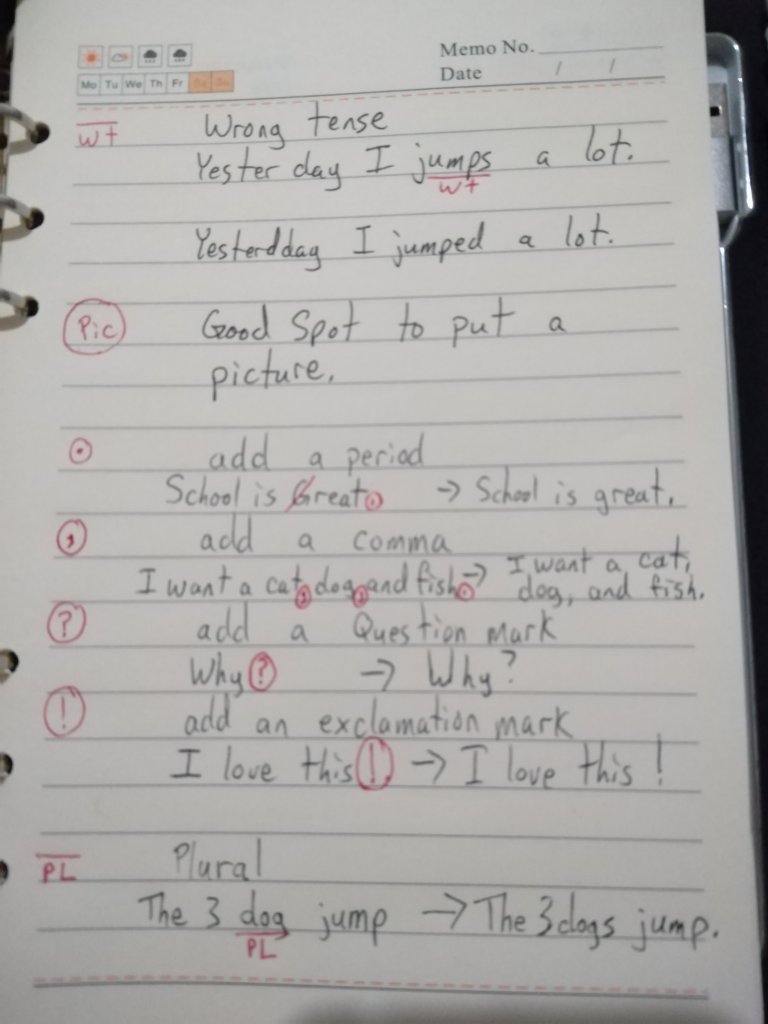 Memo No.
Mo Tu We Th Fr Sa Su
Date / /
wt Wrong tense
Yester day I jumps a lot.
wt
Yesterdday I jumped a lot.
Pic Good Spot to put a
picture.
. add a period
School is Great. → School is great.
, add a comma
I want a cat, dog, and fish. → I want a cat,
dog, and fish.
? add a Question mark
Why? → Why?
! add an exclamation mark
I love this! → I love this!
PL Plural
The 3 dog jump → The 3 dogs jump.
PL